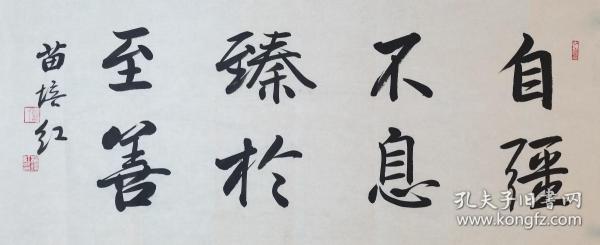 自疆
不息
臻於
至善
苗培红
孔夫子旧书网
www.kongfz.com